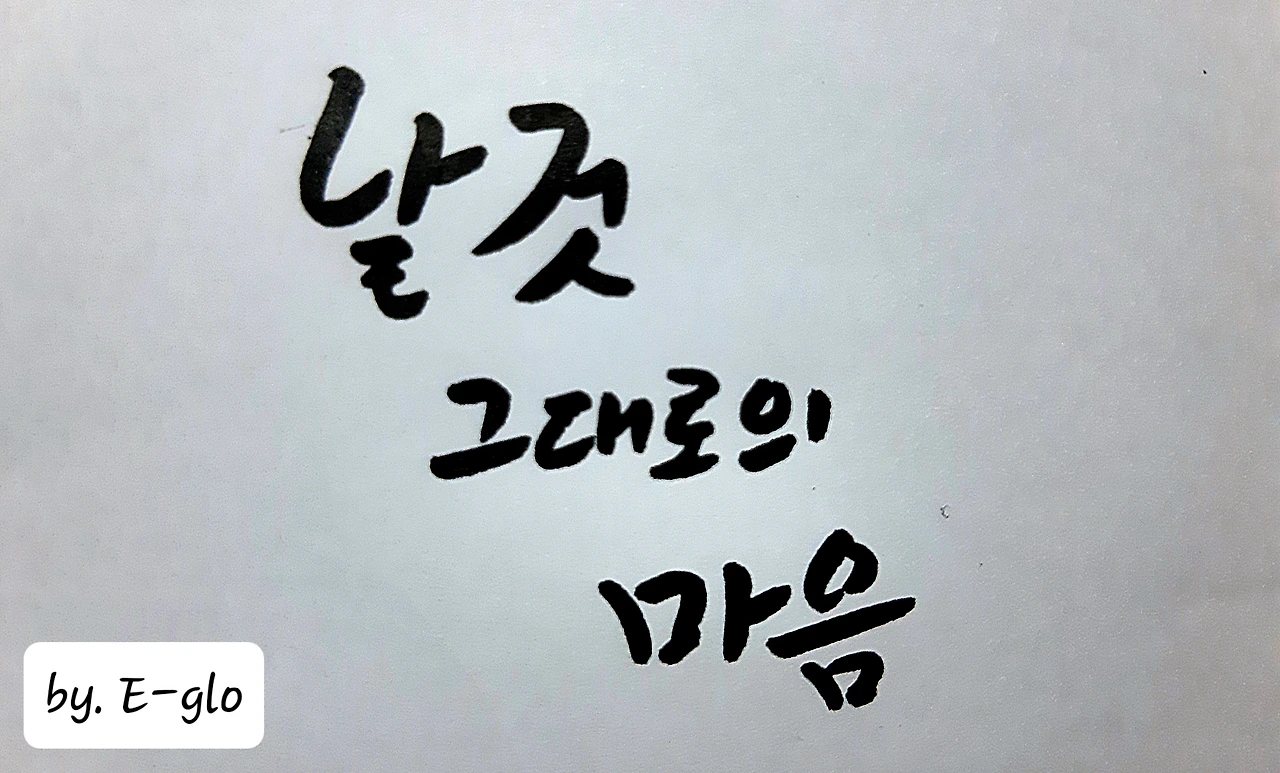 날것
그대로의
마음
by. E-glo